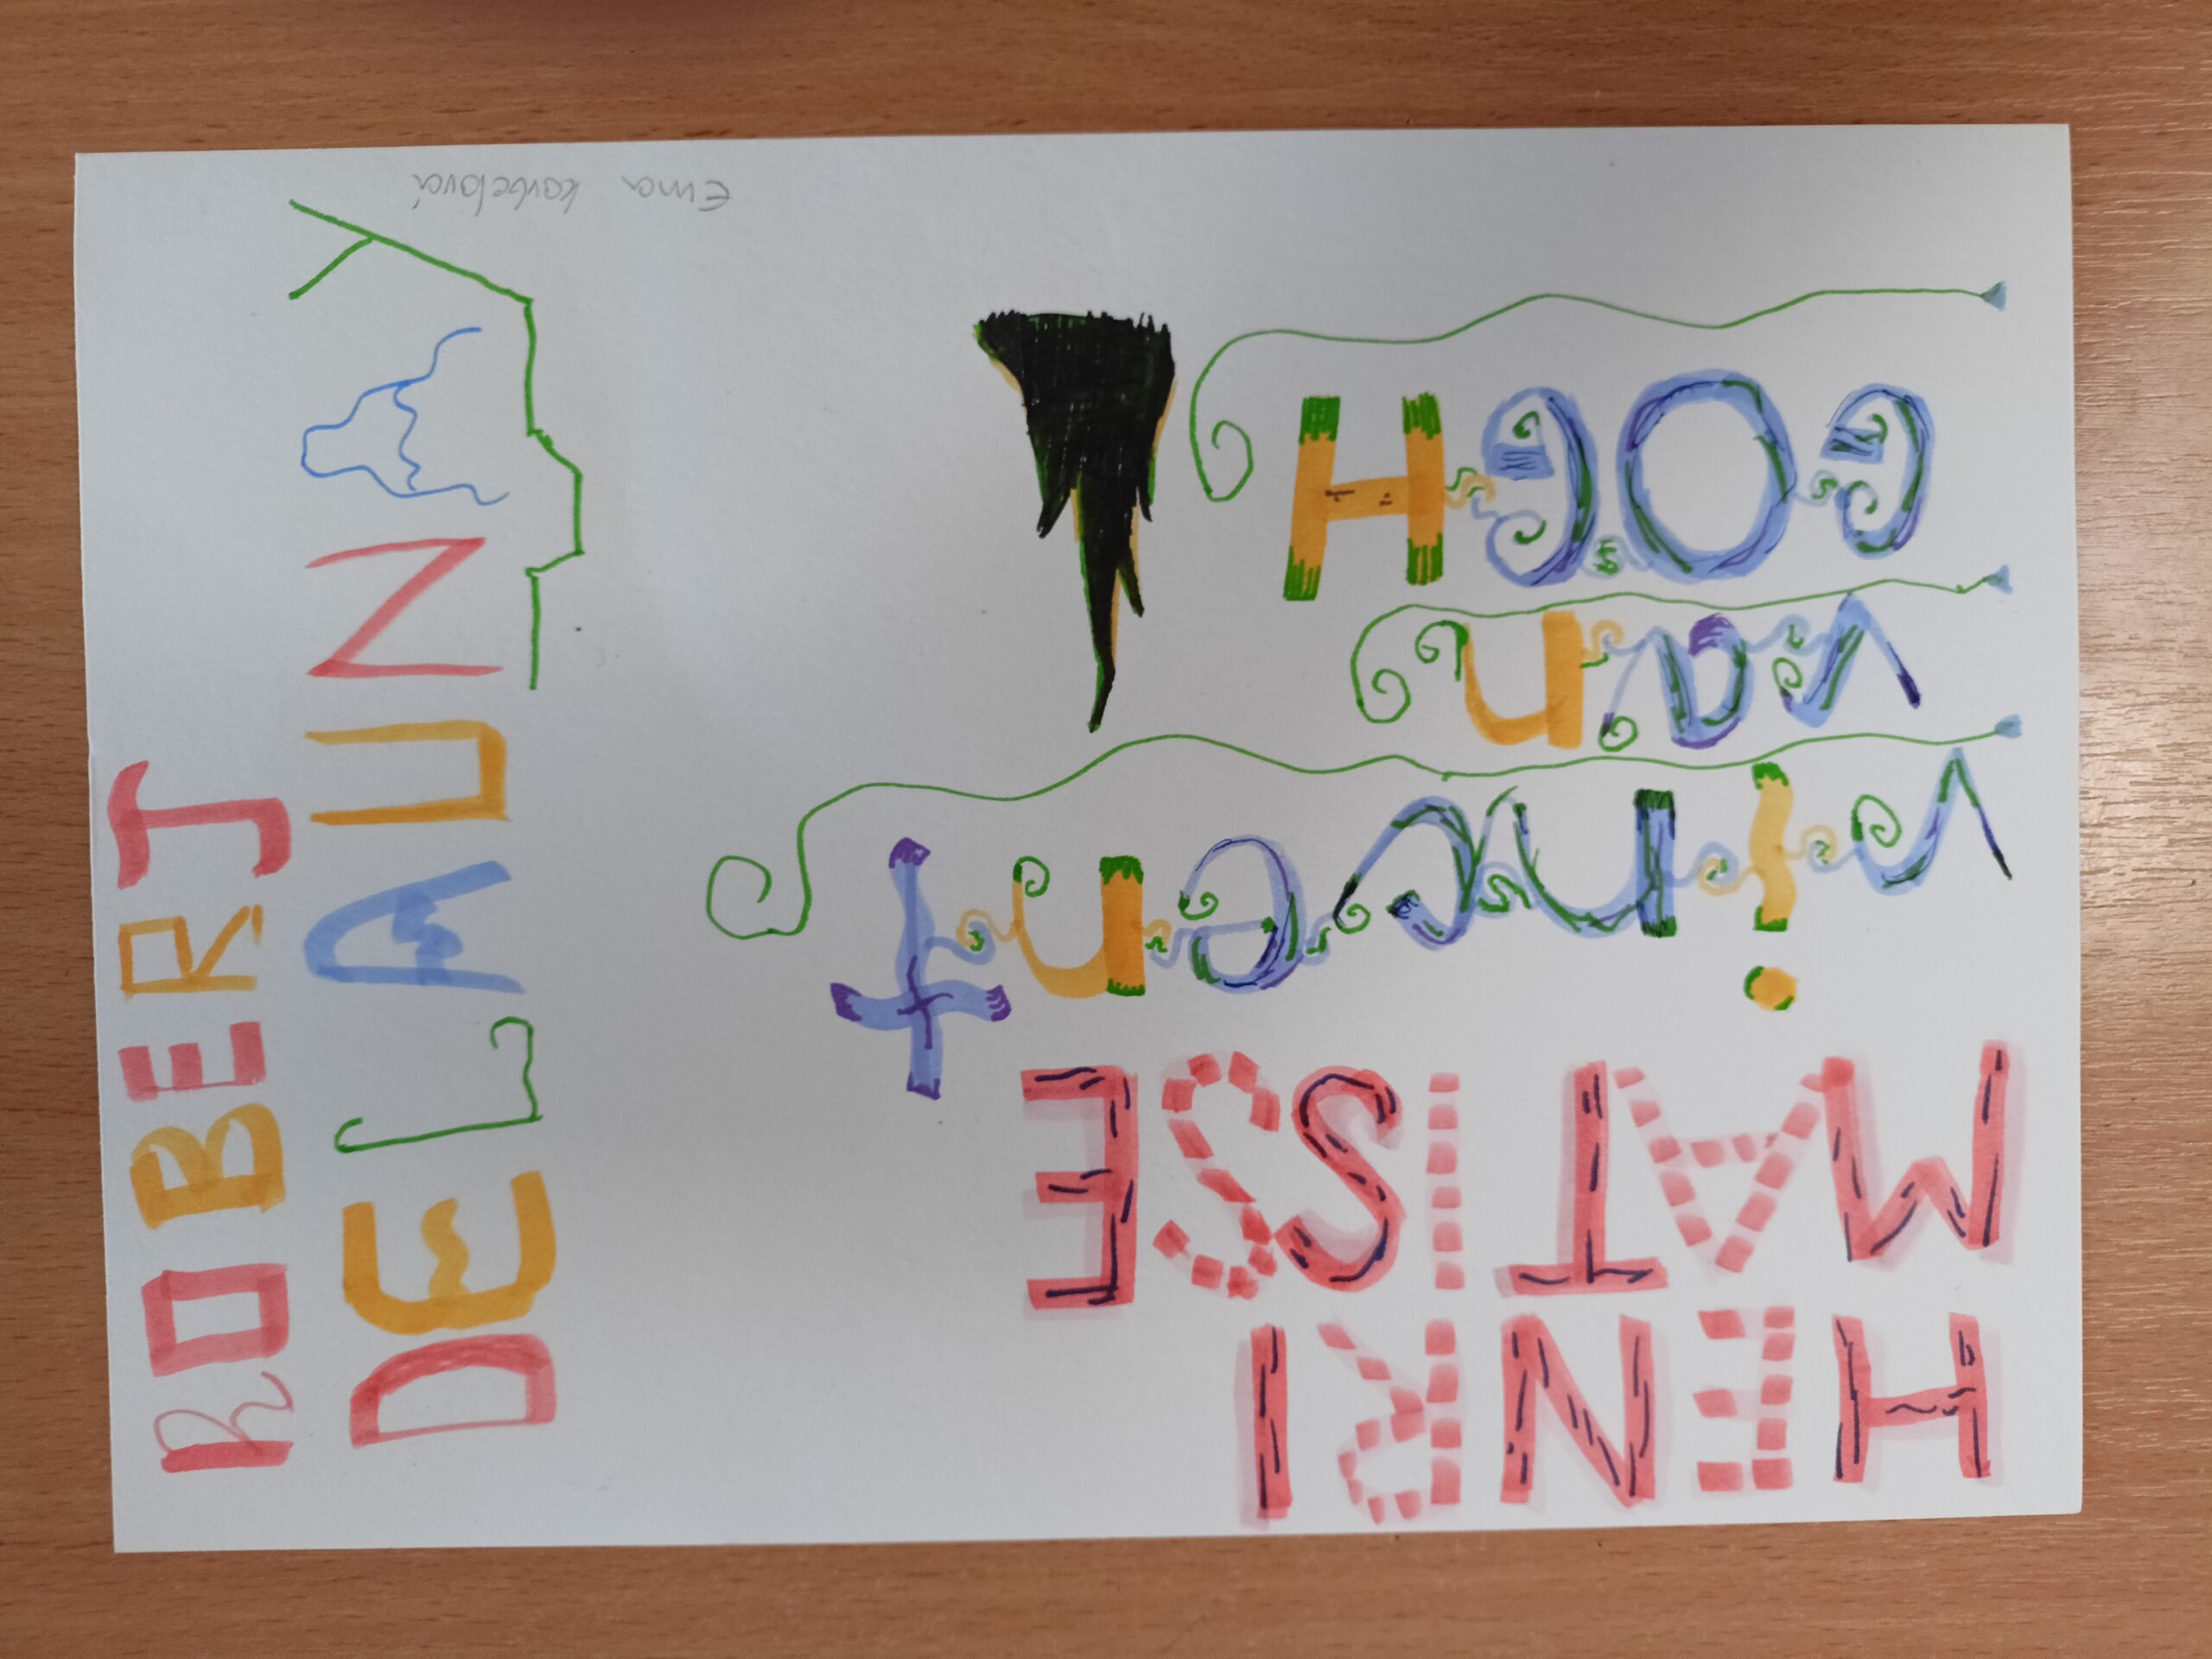 HENRI
MATISSE
vincent
van
GOGH
ROBERT
DELAUNAY
Ema